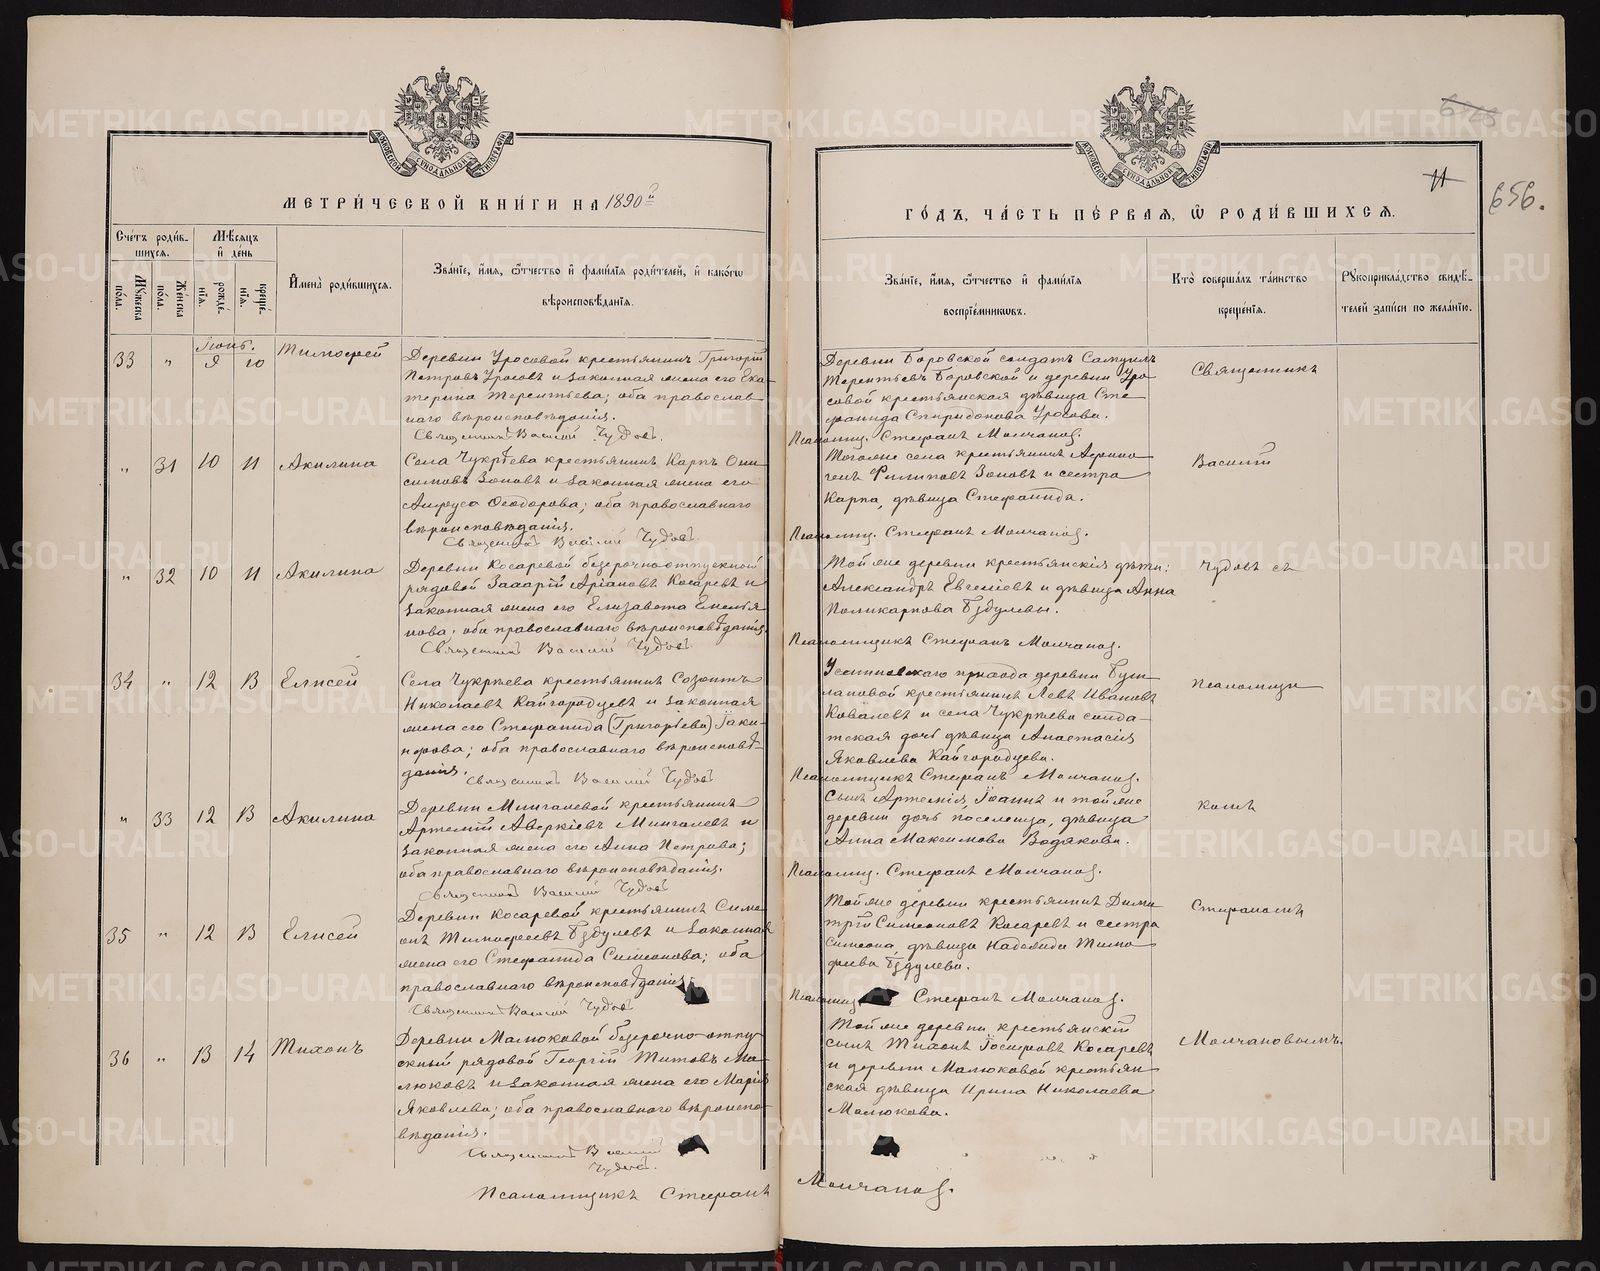 МЕТРИ́ЧЕСКОЙ КНИ́ГИ НА 1890й
ГО́ДЪ, ЧА́СТЬ ПЕ́РВАЯ, Ѡ РОДИ́ВШИХСЯ.
11
656.
Сче́тъ роди́в-
шихся.
Мѣ́сяцъ
и́ де́нь
Му́жеска по́ла.
Же́нска по́ла.
рожде́нїя.
креще́нїя.
И҆мена̀ роди́вшихся.
Зва́нїе, и҆́мя, ѻ҆́тчество и҆ фами́лїя роди́телей, и҆ како́гѡ
вѣроисповѣ́данїя.
Зва́нїе, и҆́мя, ѻ҆́тчество и҆ фами́лїя
воспрїе́мникѡвъ.
Кто̀ соверша́лъ та́инство
креще́нїя.
Рꙋкоприкла́дство свидѣ́-
телей за́писи по жела́нїю.
Іюнь.
33 " 9 10 Тимофей
Деревни Уросовой крестьянинъ Григорій
Петровъ Уросовъ и законная жена его Ека-
терина Терентьева; оба православ-
наго вѣроисповѣданія.
Священникъ Василій Чудовъ.
Деревни Боровской солдатъ Самуилъ
Терентьевъ Боровской и деревни Уро-
совой крестьянская дѣвица Сте-
фанида Спиридонова Уросова.
Псаломщ. Стефанъ Молчановъ.
Священникъ
" 31 10 11 Акилина
Села Чукрѣева крестьянинъ Карпъ Они-
симовъ Зоновъ и законная жена его
Ѳеодорова; оба православнаго
вѣроисповѣданія.
Священникъ Василій Чудовъ
Тогоже села крестьянинъ
Филиповъ Зоновъ и сестра
Карпа, дѣвица Стефанида.
Псаломщ. Стефанъ Молчановъ.
Василій
" 32 10 11 Акилина
Деревни Косаревой безсрочноотпускной
рядовой Захарій Аріановъ Косаревъ и
законная жена его Елизавета Емелья
нова; оба православнаго вѣроисповѣданія.
Священникъ Василій Чудовъ
Той же деревни крестьянскія дѣти:
Александръ Евгеніевъ и дѣвица Анна
Поликарпова Будулевы.
Псаломщикъ Стефанъ Молчановъ.
Чудовъ съ
34 " 12 13 Елисей
Села Чукрѣева крестьянинъ Созонтъ
Николаевъ Кайгородцевъ и законная
жена его Стефанида (Григорьева) Іаки-
нфова; оба православнаго вѣроисповѣ-
данія. Священникъ Василій Чудовъ
прихода деревни
крестьянинъ Левъ Ивановъ
Ковалевъ и села Чукрѣева солда-
тская дочь дѣвица Анастасія
Яковлева Кайгородцева.
Псаломщикъ Стефанъ Молчановъ.
псаломщи-
" 33 12 13 Акилина
Деревни Мингалевой крестьянинъ
Артемій Аверкіевъ Мингалевъ и
законная жена его Анна Петрова;
оба православнаго вѣроисповѣданія.
Священникъ Василій Чудовъ
Сынъ Артемія, Іоаннъ и той же
деревни дочь поселенца, дѣвица
Анна Максимова Водякова.
Псаломщ. Стефанъ Молчановъ.
комъ
35 " 12 13 Елисей
Деревни Косаревой крестьянинъ Симе-
онъ Тимофеевъ Будулевъ и законная
жена его Стефанида Симеонова; оба
православнаго вѣроисповѣданія.
Священникъ Василій Чудовъ
Той же деревни крестьянинъ Дими-
трій Симеоновъ Косаревъ и сестра
Симеона, дѣвица Надежда Тимо-
феева Будулева.
Стефанъ Молчановъ.
Стефаномъ
36 " 13 14 Тихонъ
Деревни Малюковой безсрочно-отпу-
скный рядовой Георгій Титовъ Ма-
люковъ и законная жена его Марія
Яковлева; оба православнаго вѣроиспо-
вѣданія.
Священникъ Василій
Чудовъ.
Той же деревни крестьянскій
сынъ Тихонъ Іосифовъ Косаревъ
и деревни Малюковой крестьян-
ская дѣвица Ирина Николаева
Малюкова.
Молчановымъ.
Псаломщикъ Стефанъ Молчановъ.
METRIKI.GASO-URAL.RU